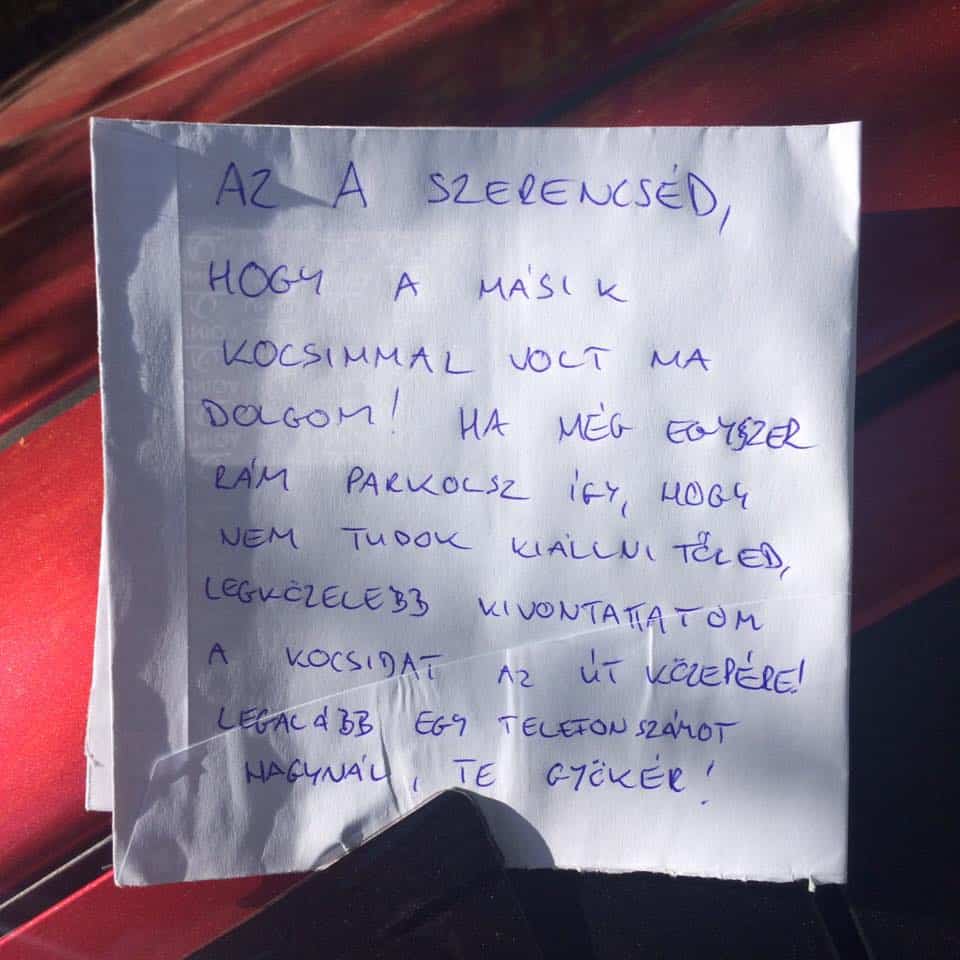 AZ A SZERENCSÉD,
HOGY A MÁSIK
KOCSIMMAL VOLT MA
DOLGOM! HA MÉG EGYSZER
RÁM PARKOLSZ ÍGY, HOGY
NEM TUDOK KIÁLLNI TŐLED,
LEGKÖZELEBB KIVONTATTATOM
A KOCSIDAT AZ ÚT KÖZEPÉRE!
LEGALÁBB EGY TELEFONSZÁMOT
HAGYNÁL, TE GYÖKÉR!